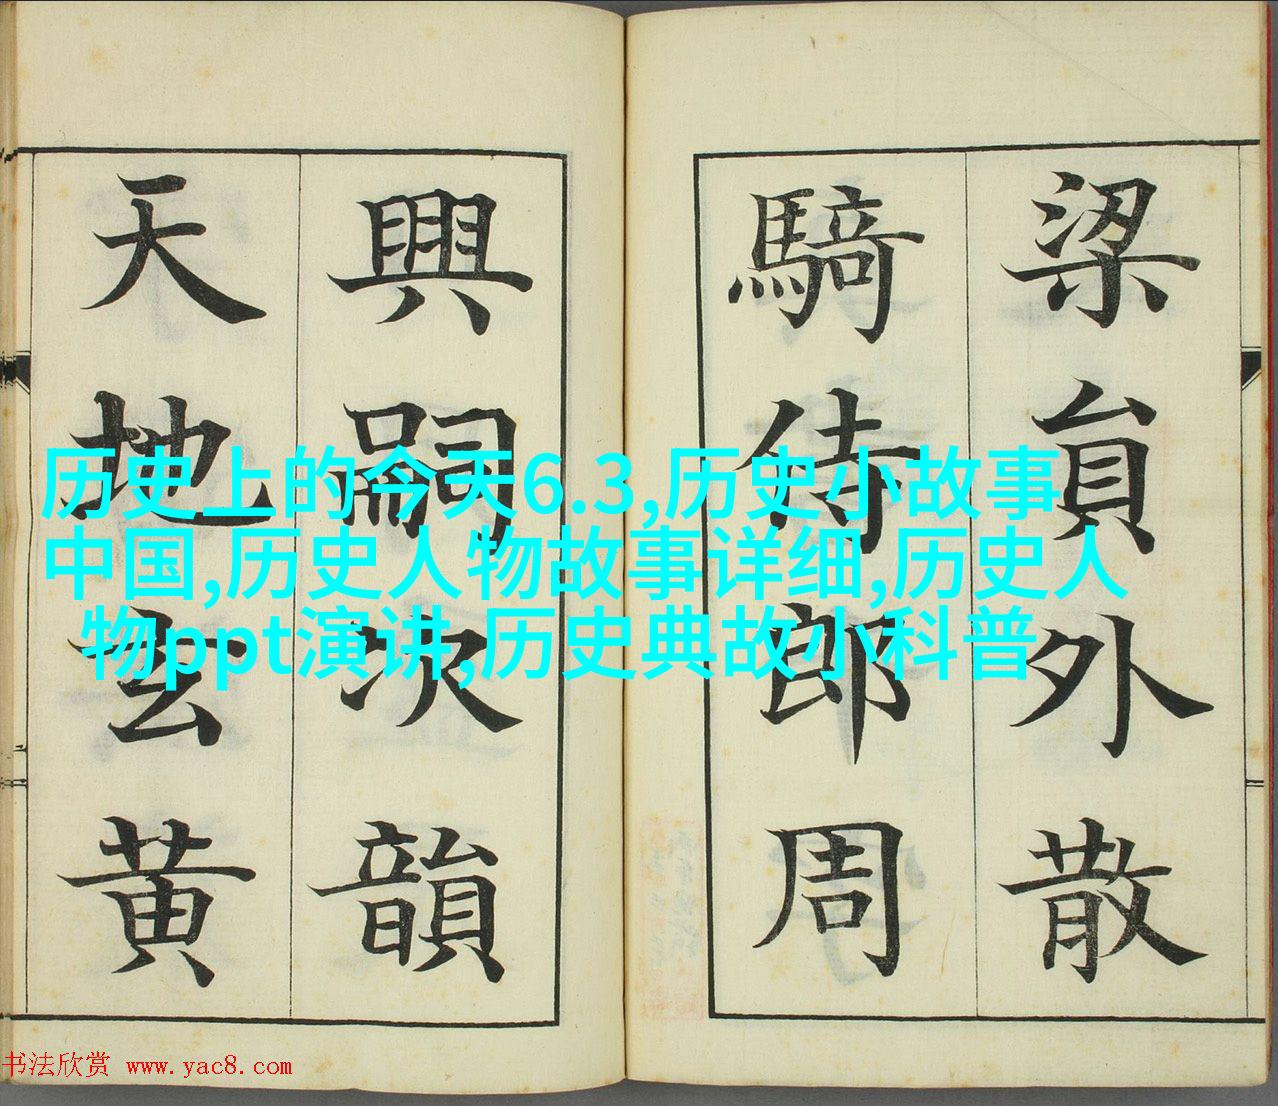 梁員外散
騎侍郎周
興嗣次韻
天地玄黃
历史上的今天6.3,历史小故事
中国,历史人物故事详细,历史人
物ppt演讲,历史典故小科普
书法欣赏 www.yac8.com